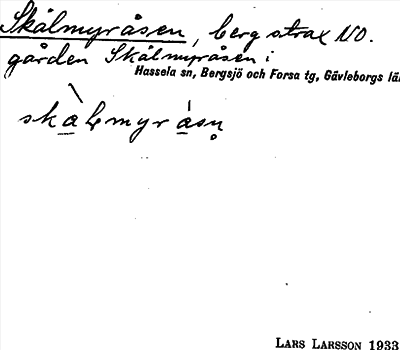 Skålmyråsen, berg strax NO.
gården Skålmyråsen i
Hassela sn, Bergsjö och Forsa tg, Gävleborgs lä
LARS LARSSON 1933